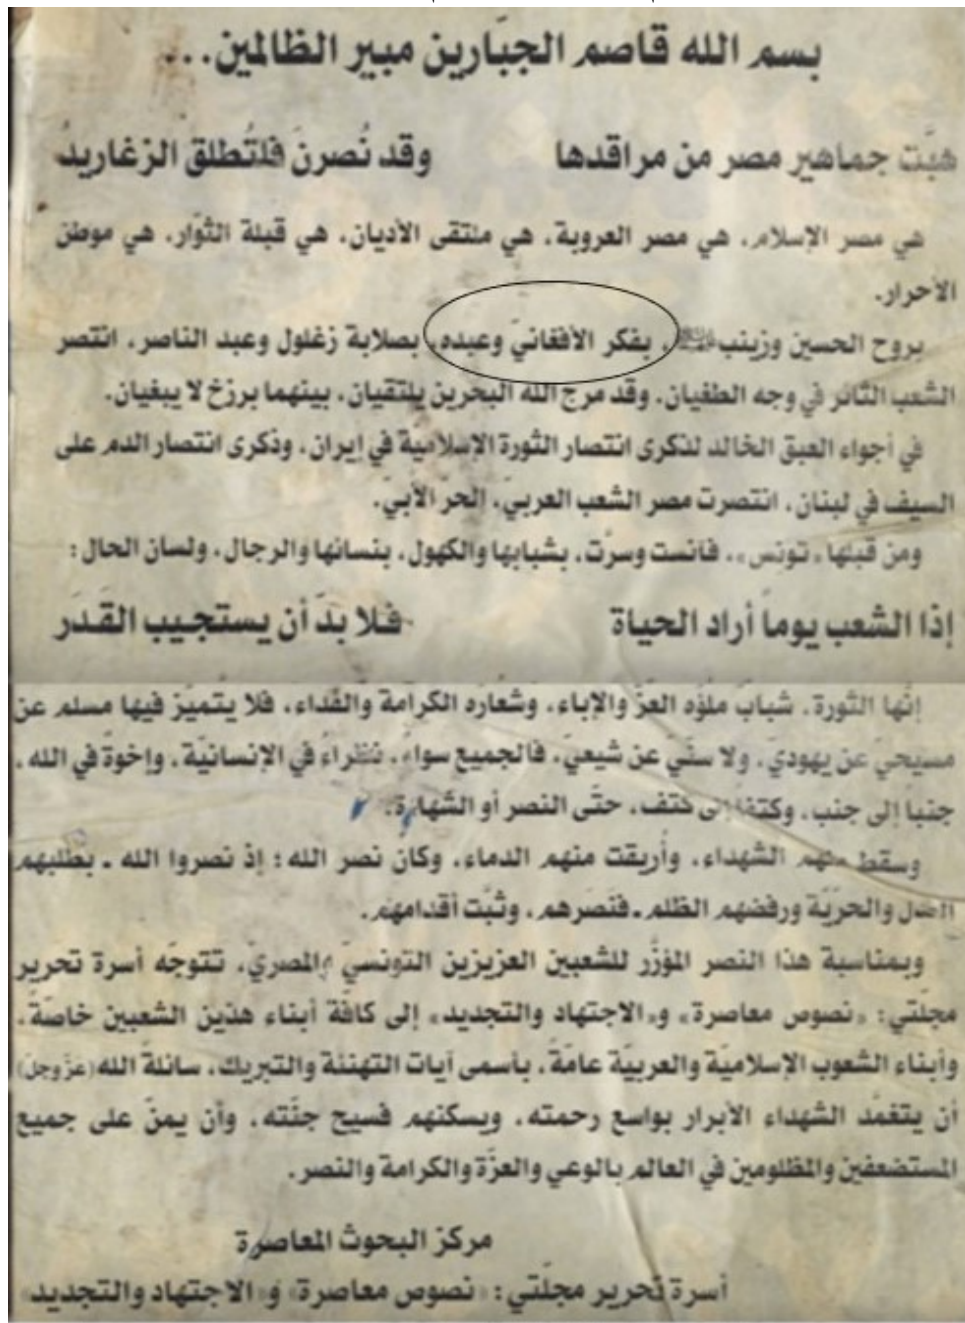 بسم الله قاصم الجبّارين مبير الظالمين...
هبّت جماهير مصر من مراقدها وقد نُصرنَ فلتُطلق الزغاريدُ
هي مصر الإسلام، هي مصر العروبة، هي ملتقى الأديان، هي قبلة الثوّار، هي موطن
الأحرار.
بروح الحسين وزينب، بفكر الأفغانيّ وعبده، بصلابة زغلول وعبد الناصر، انتصر
الشعب الثائر في وجه الطغيان، وقد مرج الله البحرين يلتقيان، بينهما برزخ لا يبغيان.
في أجواء العبق الخالد لذكرى انتصار الثورة الإسلامية في إيران، وذكرى انتصار الدم على
السيف في لبنان، انتصرت مصر الشعب العربيّ، الحرّ الأبيّ.
ومن قبلها «تونس»، فآنست وسرّت، بشبابها والكهول، بنسائها والرجال، ولسان الحال:
إذا الشعب يوماً أراد الحياة فلا بدّ أن يستجيب القَدَر
إنّها الثورة، شبابٌ ملؤه العزّ والإباء، وشعاره الكرامة والفداء، فلا يتميّز فيها مسلم عن
مسيحيّ عن يهوديّ، ولا سنّي عن شيعيّ، فالجميع سواء، نظراءُ في الإنسانيّة، وإخوة في الله،
جنباً إلى جنب، وكتفاً إلى كتف، حتّى النصر أو الشهادة.
وسقط منهم الشهداء، وأريقت منهم الدماء، وكان نصر الله؛ إذ نصروا الله ـ بطلبهم
العدل والحرّية ورفضهم الظلم ـ فنَصَرهم، وثبّت أقدامهم.
وبمناسبة هذا النصر المؤزّر للشعبين العزيزين التونسيّ والمصريّ، تتوجّه أسرة تحرير
مجلّتي: «نصوص معاصرة» و«الاجتهاد والتجديد» إلى كافّة أبناء هذين الشعبين خاصّةً،
وأبناء الشعوب الإسلاميّة والعربيّة عامّةً، بأسمى آيات التهنئة والتبريك، سائلةً الله (عزّ وجلّ)
أن يتغمّد الشهداء الأبرار بواسع رحمته، ويسكنهم فسيح جنّته، وأن يمنّ على جميع
المستضعفين والمظلومين في العالم بالوعي والعزّة والكرامة والنصر.
مركز البحوث المعاصرة
أسرة تحرير مجلّتي: «نصوص معاصرة» و«الاجتهاد والتجديد»